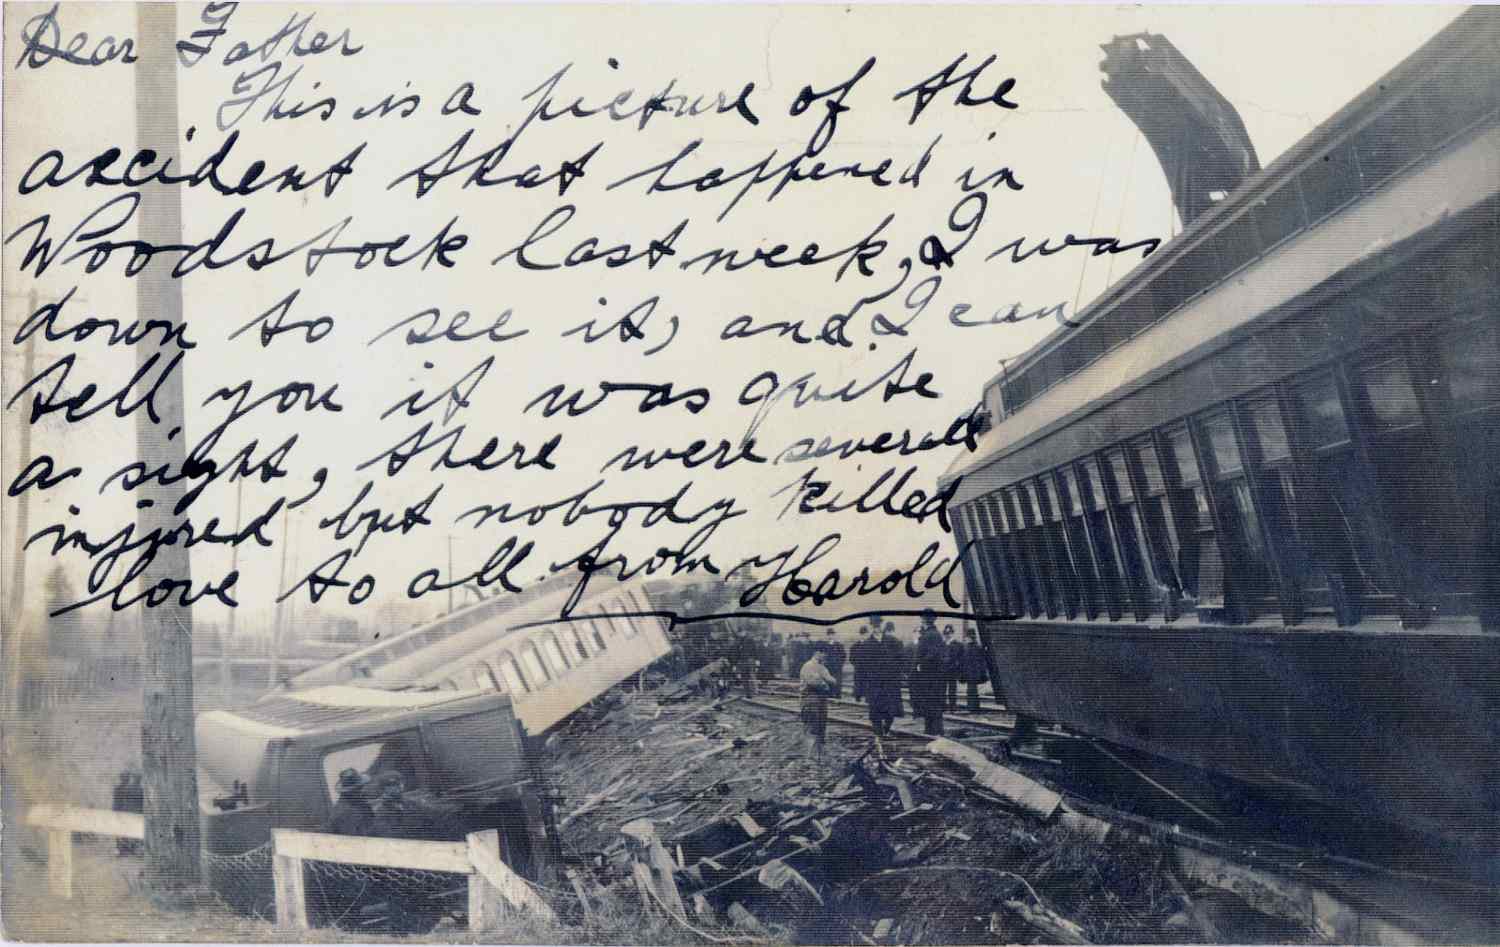 Dear Father
This is a picture of the
accident that happened in
Woodstock last week, I was
down to see it, and I can
tell you it was quite
a sight, there were several
injured but nobody killed
love to all from Harold